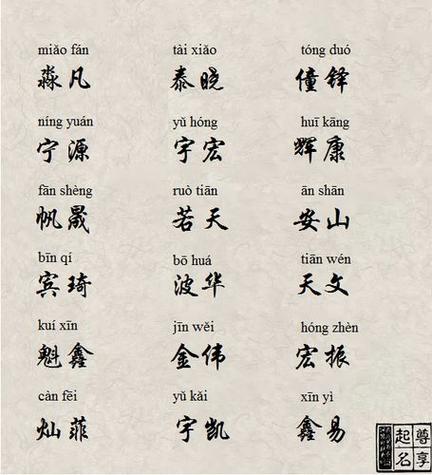 miǎo fán tài xiǎo tóng duó
淼凡 泰晓 僮铎
níng yuán yǔ hóng huī kāng
宁源 宇宏 辉康
fān shèng ruò tiān ān shān
帆晟 若天 安山
bīn qí bō huá tiān wén
宾琦 波华 天文
kuí xīn jīn wěi hóng zhèn
魁鑫 金伟 宏振
càn fēi yǔ kǎi xīn yì
灿菲 宇凯 鑫易
尊享
起名